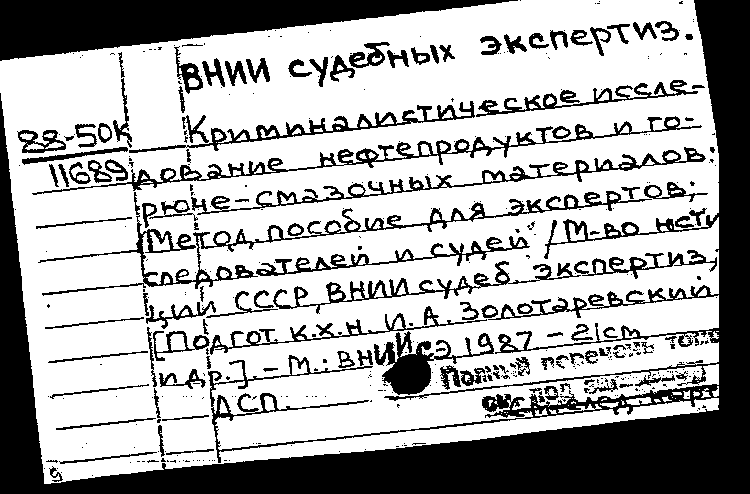 ВНИИ судебных экспертиз.
88-50К Криминалистическое иссле-
11689 дование нефтепродуктов и го-
рюче-смазочных материалов:
(Метод. пособие для экспертов,
следователей и судей / М-во юсти
ции СССР, ВНИИ судеб. экспертиз;
[Подгот. к.х.н. И.А. Золотаревский
и др.]. - М.: ВНИИСЭ, 1987 -
ДСП. Полный перечень томо
см.